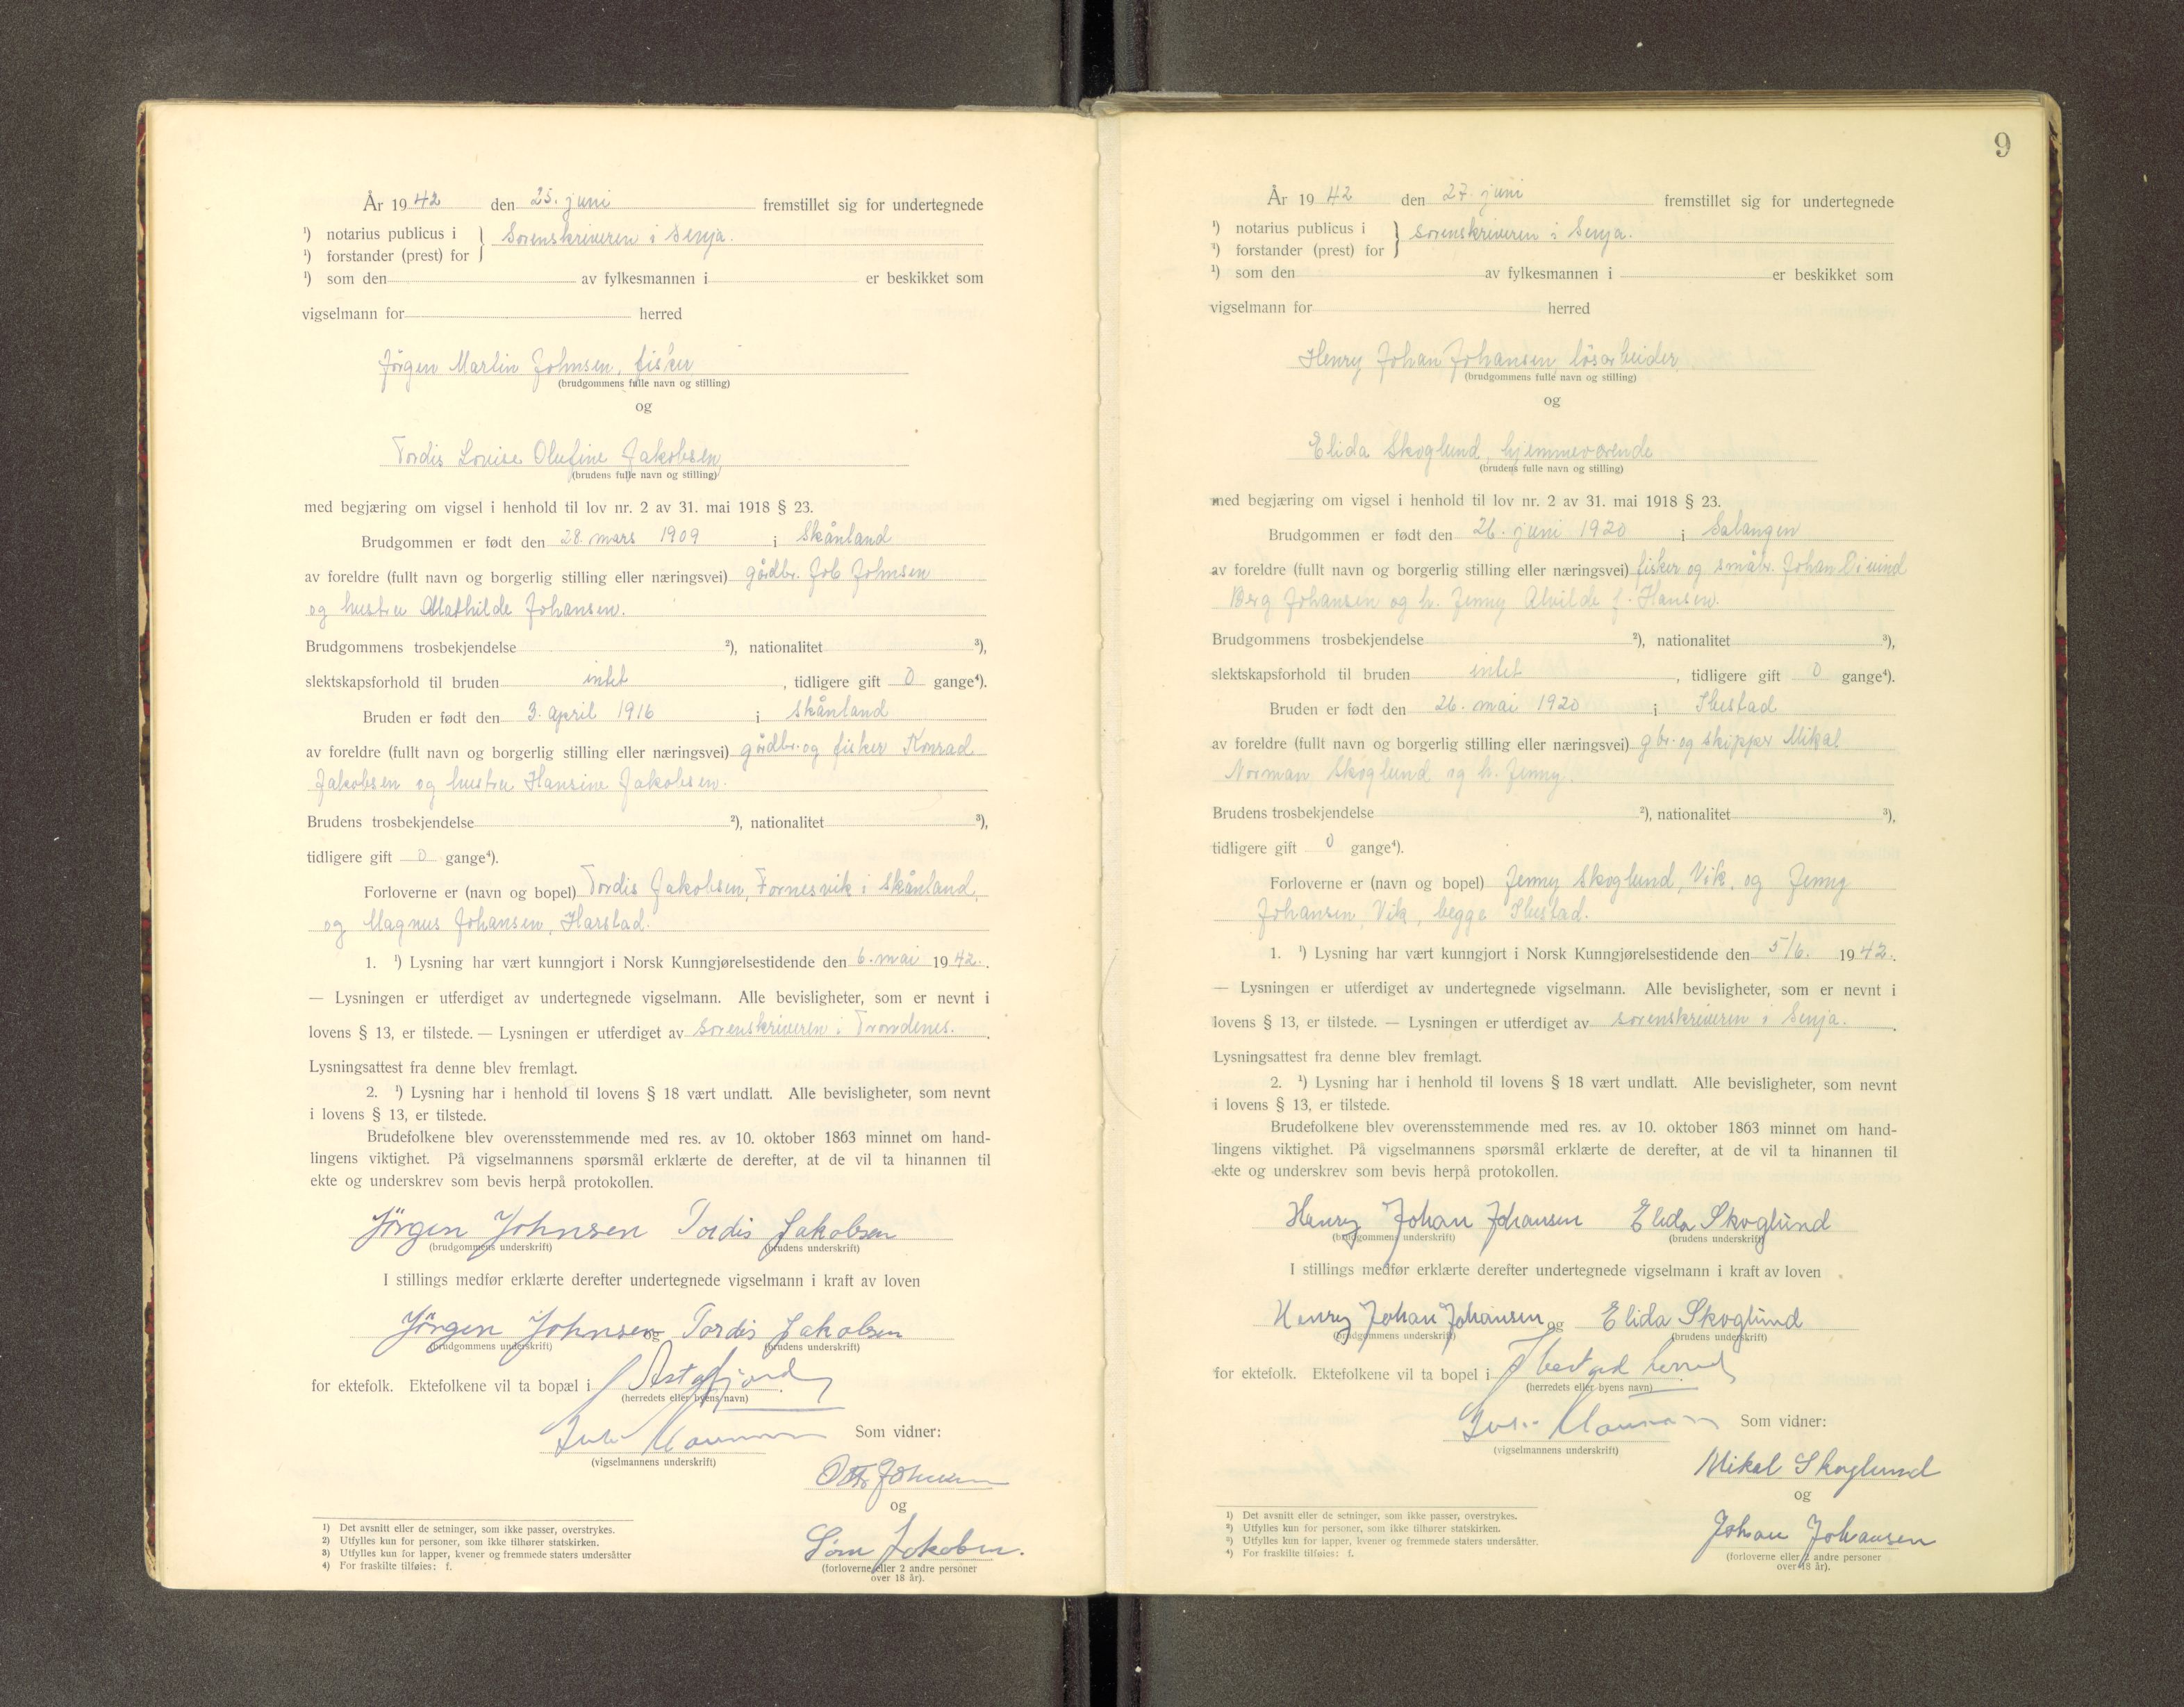 År 1942 den 25. juni fremstillet sig for undertegnede
¹) notarius publicus i } Sorenskriveren i Senja.
¹) forstander (prest) for
¹) som den av fylkesmannen i er beskikket som
vigselmann for herred
Jörgen Martin Johnsen, fisker
(brudgommens fulle navn og stilling)
og
Tordis Louise Olufine Jakobsen
(brudens fulle navn og stilling)
med begjæring om vigsel i henhold til lov nr. 2 av 31. mai 1918 § 23.
Brudgommen er født den 28. mars 1909 i Skånland
av foreldre (fullt navn og borgerlig stilling eller næringsvei) gårdbr. Job Johnsen
og hustru Mathilde Johansen.
Brudgommens trosbekjendelse ²), nationalitet ³),
slektskapsforhold til bruden intet, tidligere gift 0 gange⁴).
Bruden er født den 3. april 1916 i Skånland
av foreldre (fullt navn og borgerlig stilling eller næringsvei) gårdbr. og fisker Konrad
Jakobsen og hustru Hansine Jakobsen.
Brudens trosbekjendelse ²), nationalitet ³),
tidligere gift 0 gange⁴).
Forloverne er (navn og bopel) Tordis Jakobsen, Fornesvik i Skånland,
og Magnus Johansen, Harstad.
1. ¹) Lysning har vært kunngjort i Norsk Kunngjørelsestidende den 6. mai 1942.
— Lysningen er utferdiget av undertegnede vigselmann. Alle bevisligheter, som er nevnt i
lovens § 13, er tilstede. — Lysningen er utferdiget av sorenskriveren i Trondenes.
Lysningsattest fra denne blev fremlagt.
2. ¹) Lysning har i henhold til lovens § 18 vært undlatt. Alle bevisligheter, som nevnt
i lovens § 13, er tilstede.
Brudefolkene blev overensstemmende med res. av 10. oktober 1863 minnet om hand-
lingens viktighet. På vigselmannens spørsmål erklærte de derefter, at de vil ta hinannen til
ekte og underskrev som bevis herpå protokollen.
Jörgen Johnsen Tordis Jakobsen
(brudgommens underskrift) (brudens underskrift)
I stillings medfør erklærte derefter undertegnede vigselmann i kraft av loven
Jörgen Johnsen og Tordis Jakobsen
(brudgommens underskrift) (brudens underskrift)
for ektefolk. Ektefolkene vil ta bopæl i Astafjord
(herredets eller byens navn)
Som vidner:
(vigselmannens underskrift)
Otto Johnsen
og
Jakobsen.
(forloverne eller 2 andre personer
over 18 år).
1) Det avsnitt eller de setninger, som ikke passer, overstrykes.
2) Utfylles kun for personer, som ikke tilhører statskirken.
3) Utfylles kun for lapper, kvener og fremmede staters undersåtter
4) For fraskilte tilføies: f.
9
År 1942 den 27. juni fremstillet sig for undertegnede
¹) notarius publicus i } sorenskriveren i Senja.
¹) forstander (prest) for
¹) som den av fylkesmannen i er beskikket som
vigselmann for herred
Henry Johan Johansen, lösarbeider
(brudgommens fulle navn og stilling)
og
Elida Skoglund, hjemmeværende
(brudens fulle navn og stilling)
med begjæring om vigsel i henhold til lov nr. 2 av 31. mai 1918 § 23.
Brudgommen er født den 26. juni 1920 i Salangen
av foreldre (fullt navn og borgerlig stilling eller næringsvei) fisker og småbr. Johan Eivind
Berg Johansen og h. Jenny Alvilde f. Hansen.
Brudgommens trosbekjendelse ²), nationalitet ³),
slektskapsforhold til bruden intet, tidligere gift 0 gange⁴).
Bruden er født den 26. mai 1920 i Ibestad
av foreldre (fullt navn og borgerlig stilling eller næringsvei) gbr. og skipper Mikal
Norman Skoglund og h. Jenny.
Brudens trosbekjendelse ²), nationalitet ³),
tidligere gift 0 gange⁴).
Forloverne er (navn og bopel) Jenny Skoglund, Vik, og Jenny
Johansen, Vik, begge Ibestad.
1. ¹) Lysning har vært kunngjort i Norsk Kunngjørelsestidende den 5/6. 1942.
— Lysningen er utferdiget av undertegnede vigselmann. Alle bevisligheter, som er nevnt i
lovens § 13, er tilstede. — Lysningen er utferdiget av sorenskriveren i Senja.
Lysningsattest fra denne blev fremlagt.
2. ¹) Lysning har i henhold til lovens § 18 vært undlatt. Alle bevisligheter, som nevnt
i lovens § 13, er tilstede.
Brudefolkene blev overensstemmende med res. av 10. oktober 1863 minnet om hand-
lingens viktighet. På vigselmannens spørsmål erklærte de derefter, at de vil ta hinannen til
ekte og underskrev som bevis herpå protokollen.
Henry Johan Johansen Elida Skoglund
(brudgommens underskrift) (brudens underskrift)
I stillings medfør erklærte derefter undertegnede vigselmann i kraft av loven
Henry Johan Johansen og Elida Skoglund
(brudgommens underskrift) (brudens underskrift)
for ektefolk. Ektefolkene vil ta bopel i Ibestad herred
(herredets eller byens navn)
Som vidner:
(vigselmannens underskrift)
Mikal Skoglund
og
Johan Johansen
(forloverne eller 2 andre personer
over 18 år).
¹) Det avsnitt eller de setninger, som ikke passer, overstrykes.
²) Utfylles kun for personer, som ikke tilhører statskirken.
³) Utfylles kun for lapper, kvener og fremmede staters undersåtter.
⁴) For fraskilte tilføies: f.